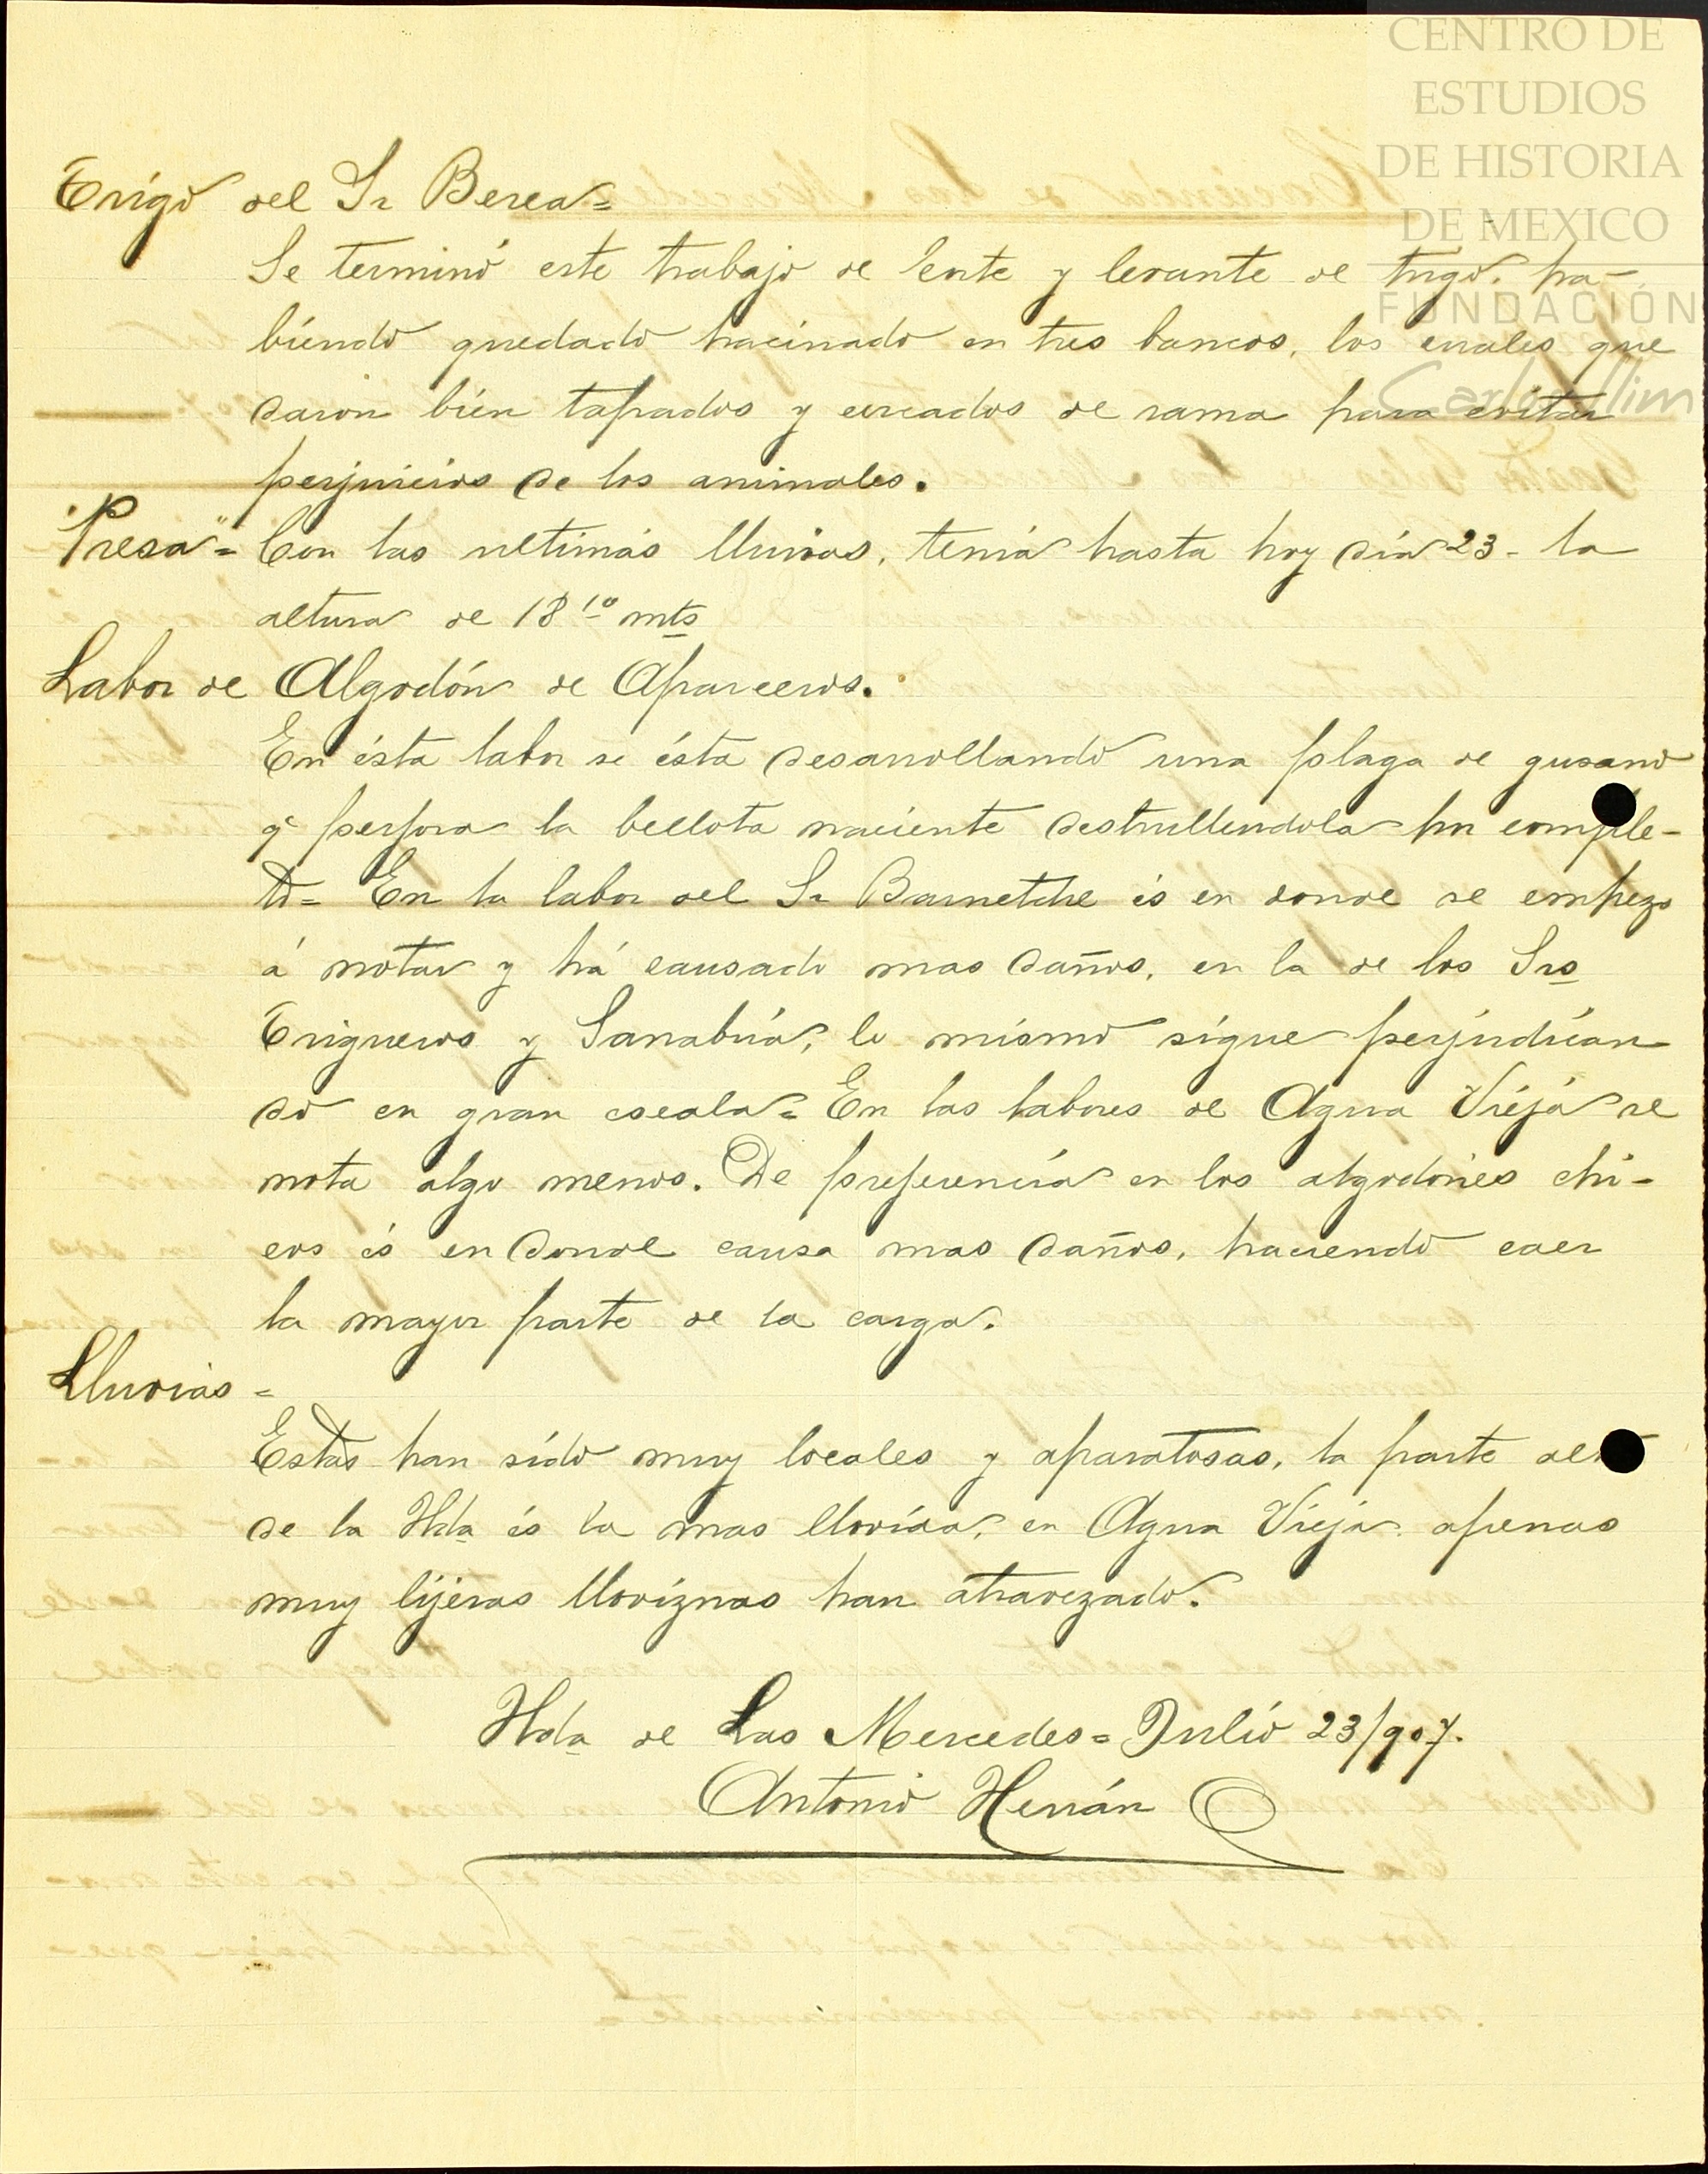 CENTRO DE
ESTUDIOS
DE HISTORIA
DE MEXICO
FUNDACIÓN
Carlos Slim
Trigo del Sr Berea=
Se terminó este trabajo de corte y levante de trigo, ha-
biendo quedado hacinado en tres bancos, los cuales que
daron bien tapados y cercados de rama para evitar
perjuicios de los animales.
"Presa"= Con las ultimas lluvias, tenia hasta hoy dia 23- la
altura de 18 10 mts
Labor de Algodón de Aparceros.
En ésta labor se ésta desarrollando una plaga de gusano
qe perfora la bellota naciente destrullendola por comple-
to= En la labor del Sr Barnetche és en donde se empezo
á notar y há causado mas daños, en la de los Srs
Trigueros y Sanabria, lo mismo sigue perjudican
do en gran escala= En las labores de Agua Vieja se
nota algo menos. De preferencia en los algodones chi-
cos és en donde causa mas daños, haciendo caer
la mayor parte de la carga.
Lluvias=
Estas han sido muy locales y aparatosas, la parte alta
de la Hda és la mas llovida, en Agua Vieja apenas
muy lijeras lloviznas han atravezado.
Hda de Las Mercedes= Julio 23/907.
Antonio Herrán